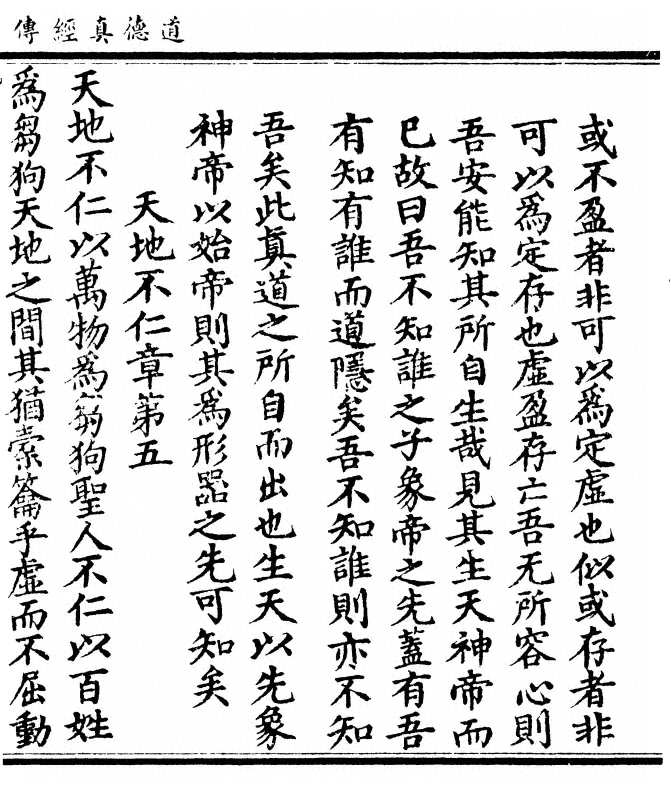 道德真經傳
或不盈者非可以爲定虛也似或存者非
可以爲定存也虛盈存亡吾无所容心則
吾安能知其所自生哉見其生天神帝而
已故曰吾不知誰之子象帝之先蓋有吾
有知有誰而道隱矣吾不知誰則亦不知
吾矣此眞道之所自而出也生天以先象
神帝以始帝則其爲形器之先可知矣
天地不仁章第五
天地不仁以萬物爲芻狗聖人不仁以百姓
爲芻狗天地之間其猶橐籥乎虛而不屈動